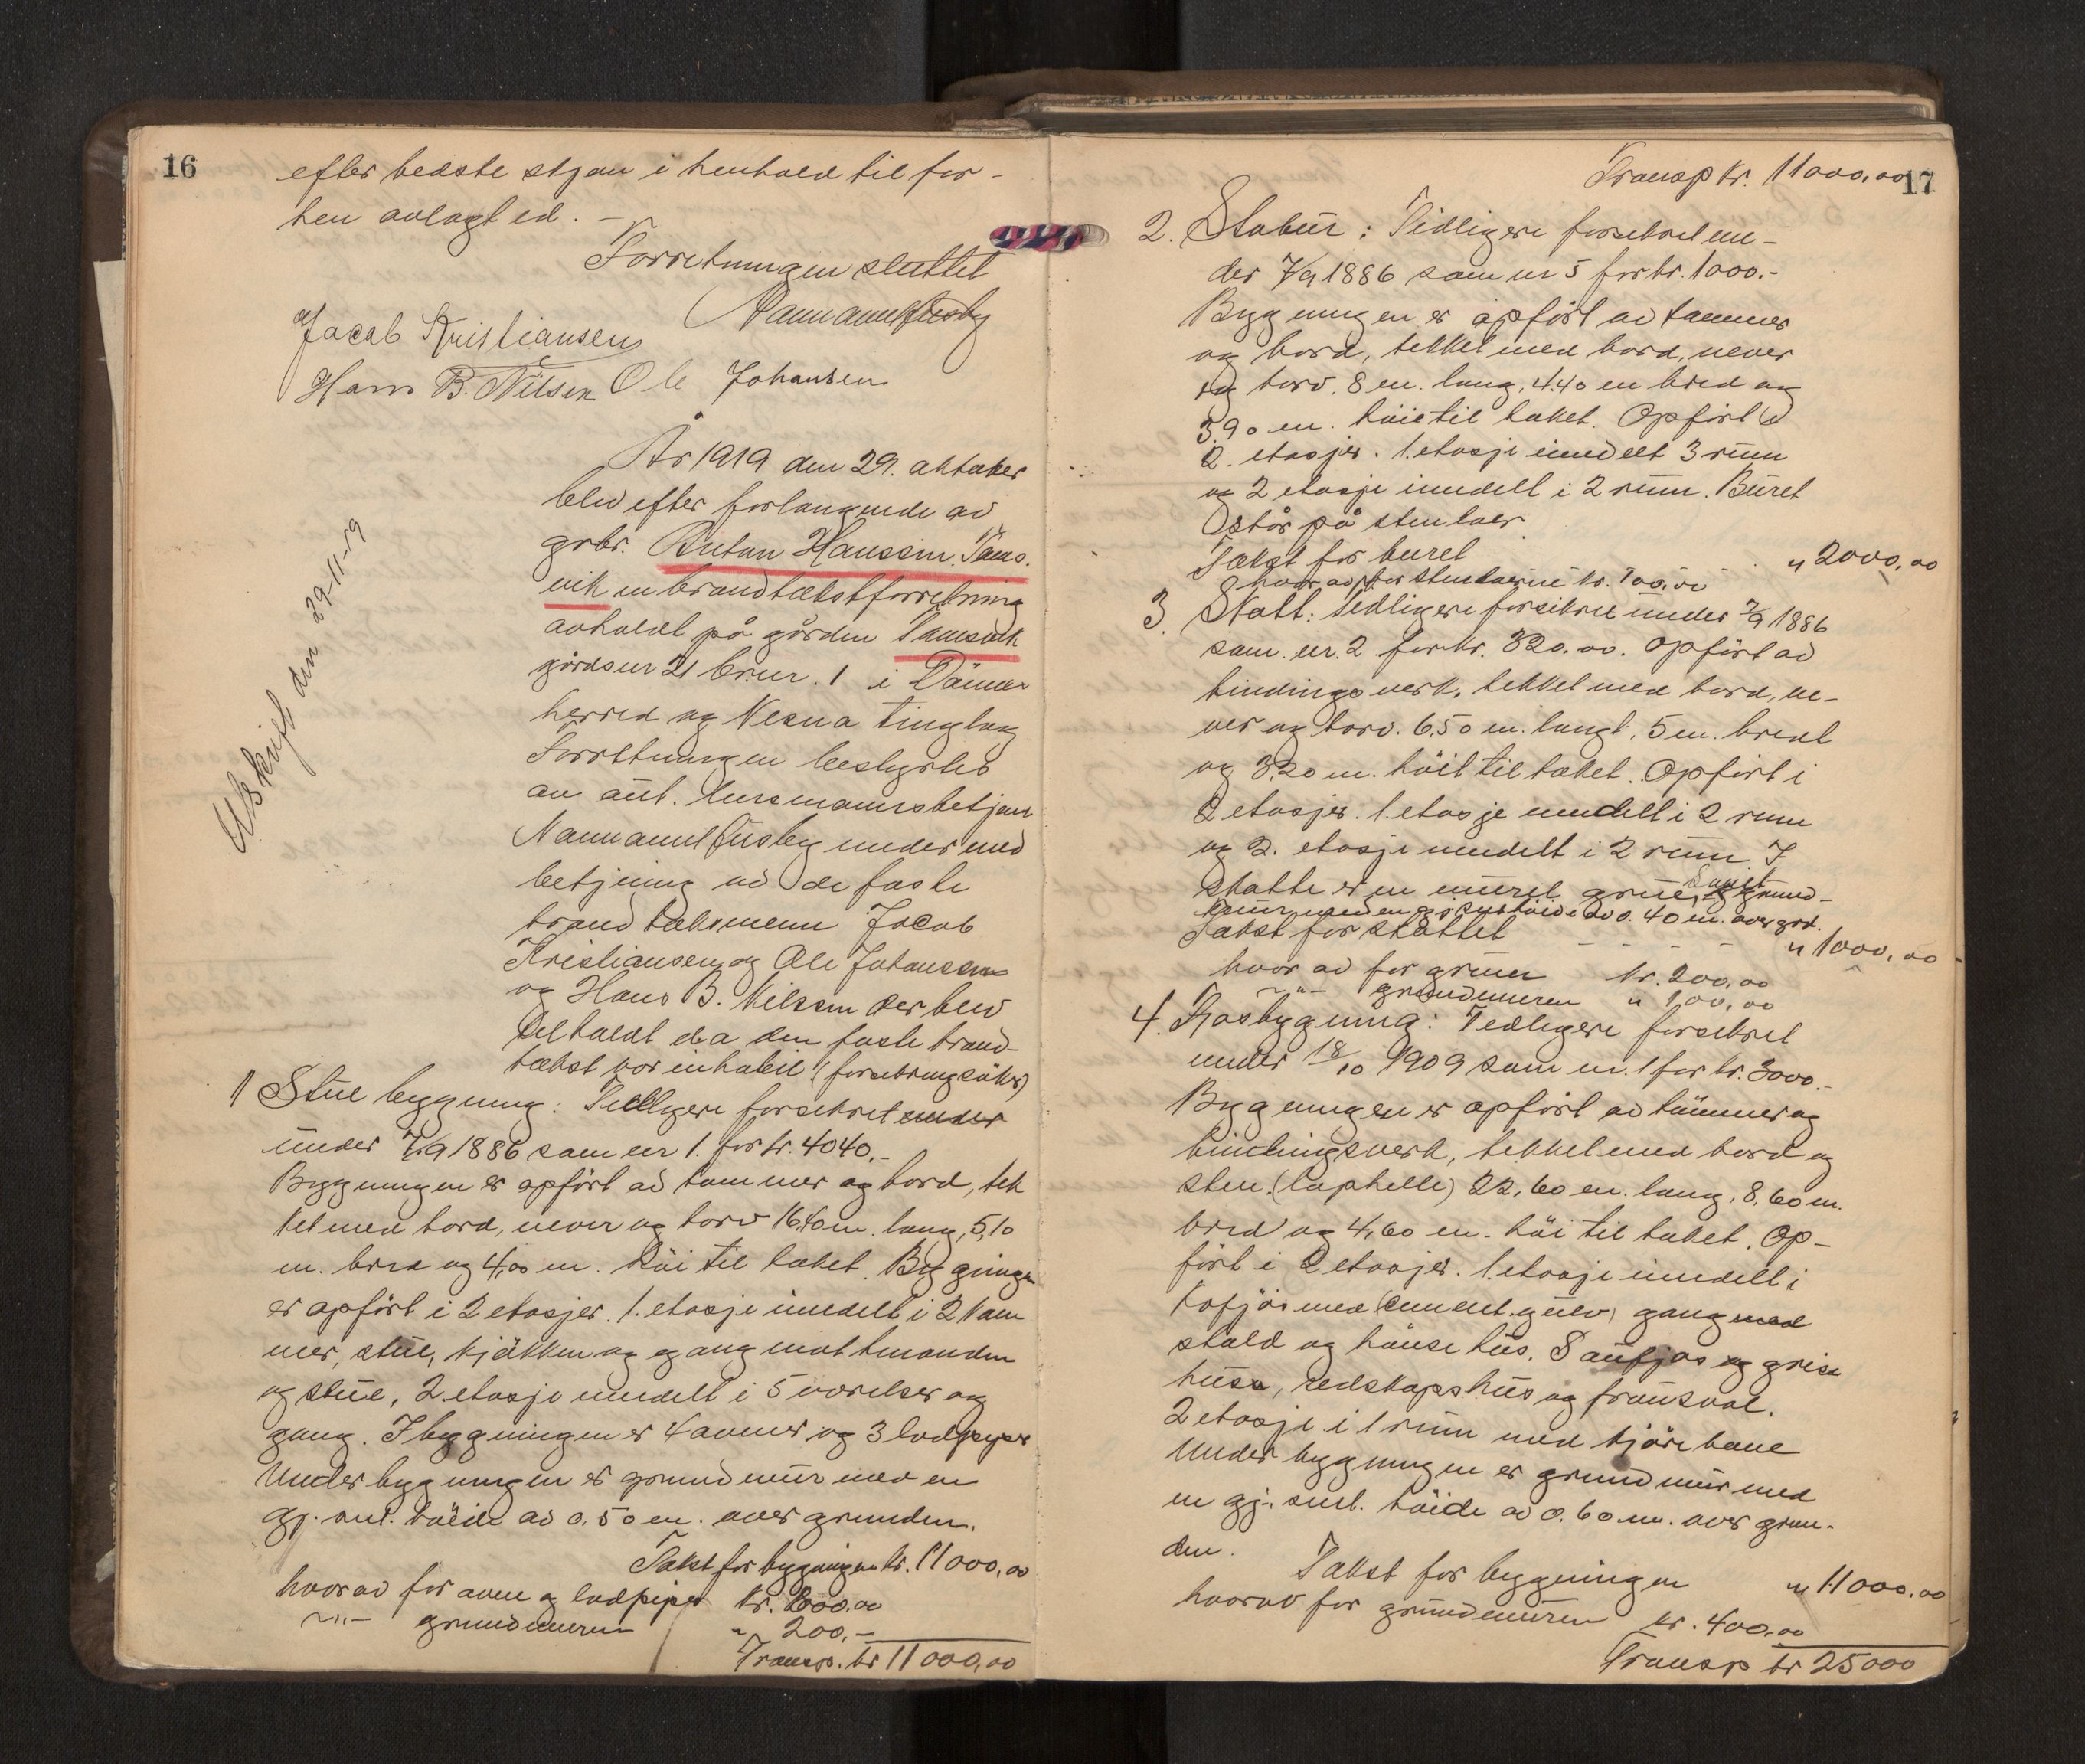 16
efter bedste skjøn i henhold til for-
hen avlagt ed. -
Forretningen sluttet
Jacob Kristiansen
Hans B. Nilsen Ole Johansen
Avskrift den 29-11-19
År 1919 den 29. oktober
blev efter forlangende av
grbr. Anton Hanssen Tams-
vik en brandtakstforretning
avholdt på gården Tamsvik
gårdsnr 21 br.nr. 1 i Dønnes
herred og Nesna tinglag
Forretningen bestyrtes
av aut. lensmannsbetjent
under med
betjening av de faste
brandtakstmenn Jacob
Kristiansen og Ole Johansen
og Hans B. Nilssen der blev
tilkaldt da den faste brand-
takst var inhabil (forsikringssøker)
1 Stuebygning: Tidligere forsikret under
under 7/9 1886 som nr 1. for kr. 4040.-
Bygningen er opført av tømmer og bord, tek
ket med bord, never og torv 16,40 m. lang, 5,10
m. bred og 4,00 m. høi til taket. Bygningen
er opført i 2 etasjer. 1. etasje inndelt i 2 kam
mer, stue, kjøkken og gang mot
og stue, 2 etasje inndelt i 5 værelser og
gang. I bygningen er 4 ovner og 3 lodpiper
Under bygningen er grundmur med en
gj. snt. høide av 0.50 m. over grunden.
Takst for bygningen kr. 11000,00
hvorav for ovne og lodpiper kr. 1000.00
-"- grundmuren " 200,-
Transp. kr 11000,00
Transp kr. 11000,00
17
2. Stabur: Tidligere forsikret un-
der 7/9 1886 som nr 5 for kr. 1000.-
Bygningen er opført av tømmer
og bord, tekket med bord, never
og torv. 8 m. lang, 4.40 m bred og
3.90 m. høi til taket. Opført i
2. etasjer. 1. etasje inndelt 3 rum
og 2 etasje inndelt i 2 rum. Buret
står på stentaer
Takst for buret " 2000,00
hvorav for stentaerne kr. 100,00
3. Natt: Tidligere forsikret under 7/9 1886
som nr. 2 for kr. 320.00. Opført av
bindingsverk, tekket med bord, ne-
ver og torv. 6,50 m. langt, 5 m. bredt
og 3,20 m. høit til taket. Opført i
2 etasjer. 1. etasje inndelt i 2 rum
og 2. etasje inndelt i 2 rum. I
er en muret grue, grund-
mur med en gj.snt høide av 0.40 m. over grd.
Takst for - - - - " 1000,00
hvorav for gruen kr. 200,00
-"- grundmuren " 100,00
4. Fjøsbygning: Tidligere forsikret
under 18/10 1909 som nr. 1 for kr. 3000.-
Bygningen er opført av tømmer og
bindingsverk, tekket med bord og
sten (laphelle) 22,60 m. lang, 8,60 m.
bred og 4,60 m. høi til taket. Op-
ført i 2 etasjer. 1. etasje inndelt i
kofjøs med (cement gulv) gang med
stald og hønsehus. Saufjøs og grise
huse, redskapshus og
2 etasje i 1 rum med kjørebane
Under bygningen er grundmur med
en gj. snt. høide av 0.60 m. over grun-
den.
Takst for bygningen " 11000,00
hvorav for grundmuren kr. 400,00
Transp kr 25000